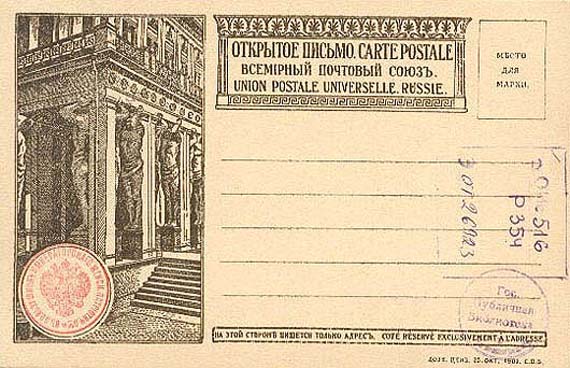 ОТКРЫТОЕ ПИСЬМО. CARTE POSTALE
ВСЕМІРНЫЙ ПОЧТОВЫЙ СОЮЗЪ.
UNION POSTALE UNIVERSELLE. RUSSIE.
МѢСТО
ДЛЯ
МАРКИ.
Р 354
Гос.
Публичная
Библиотека
НА ЭТОЙ СТОРОНѢ ПИШЕТСЯ ТОЛЬКО АДРЕСЪ. COTÉ RÉSERVÉ EXCLUSIVEMENT A L'ADRESSE
ДОЗВ. ЦЕНЗ. 25 ОКТ. 1903. С.П.Б.